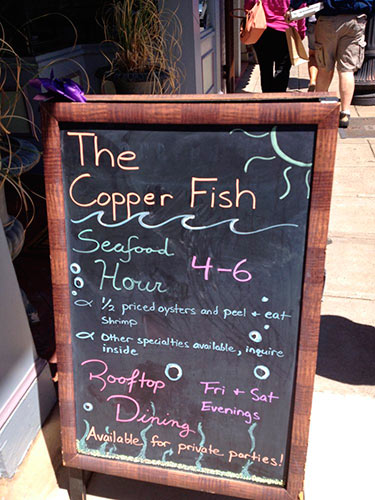 The
Copper Fish
Seafood
Hour 4-6
1/2 priced oysters and peel + eat
Shrimp
Other specialties available, inquire
inside
Rooftop
Dining
Fri + Sat
Evenings
Available for private parties!